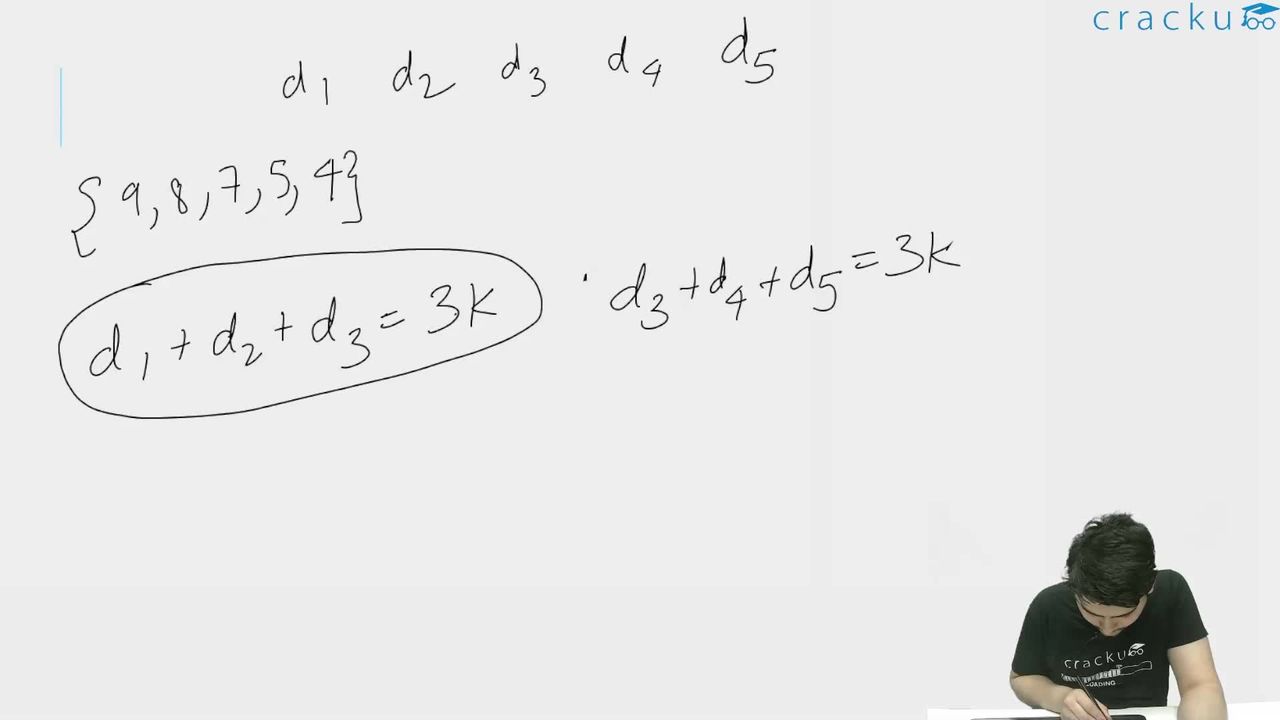 cracku
d1 d2 d3 d4 d5
{9, 8, 7, 5, 4}
d1 + d2 + d3 = 3k
d3 + d4 + d5 = 3k
cracku
LOADING